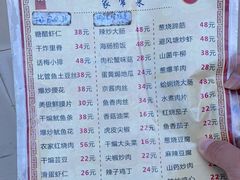 家常菜
糖醋虾仁 38元 辣炒大肠 38元 葱烧蹄筋 48元
干炸里脊 34元 海肠捞饭 48元 避风塘炒虾 48元
话梅小排 48元 肉松蟹味菇 28元 山菌牛柳 38元
比管鱼土豆丝 28元 蛋黄焗南瓜 28元 葱爆羊肉 48元
爆炒腰花 38元 京酱肉丝 34元 蛤蜊烧大肠 48元
美极鲜腰片 38元 鱼香肉丝 28元 水煮肉片 36元
干煸鱿鱼丝 38元 香菇油菜 16元 红烧茄子 22元
爆炒鱿鱼花 38元 虎皮尖椒 22元 鱼香茄子
农家红烧肉 48元 干煸大头菜 16元 葱烧豆腐 22元
干煸芸豆 22元 尖椒炒肉 22元 麻辣豆腐
滑蛋虾仁 26元 辣子鸡丁 24元 山药炒肉